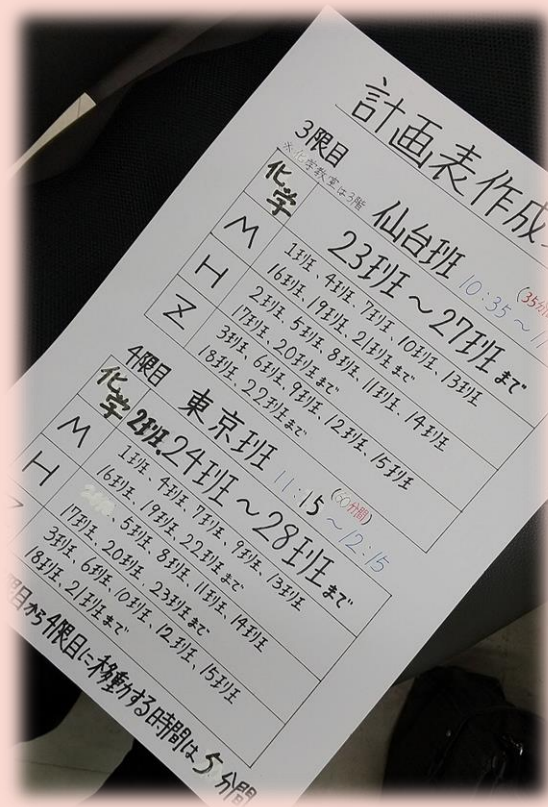 計画表作成
3限目
※化学教室は3階
仙台班 10:35～11 (35分
化学 23班～27班まで
M 1班、4班、7班、10班、13班
16班、19班、21班まで
H 2班、5班、8班、11班、14班
17班、20班まで
Z 3班、6班、9班、12班、15班
18班、22班まで
4限目 東京班 11:15～12:15 (60分間)
化学 2班、24班～28班まで
M 1班、4班、7班、9班、13班
16班、19班、22班まで
H 5班、8班、11班、14班
17班、20班、23班まで
3班、6班、10班、12班、15班
18班、21班まで
限目から4限目に移動する時間は5分間